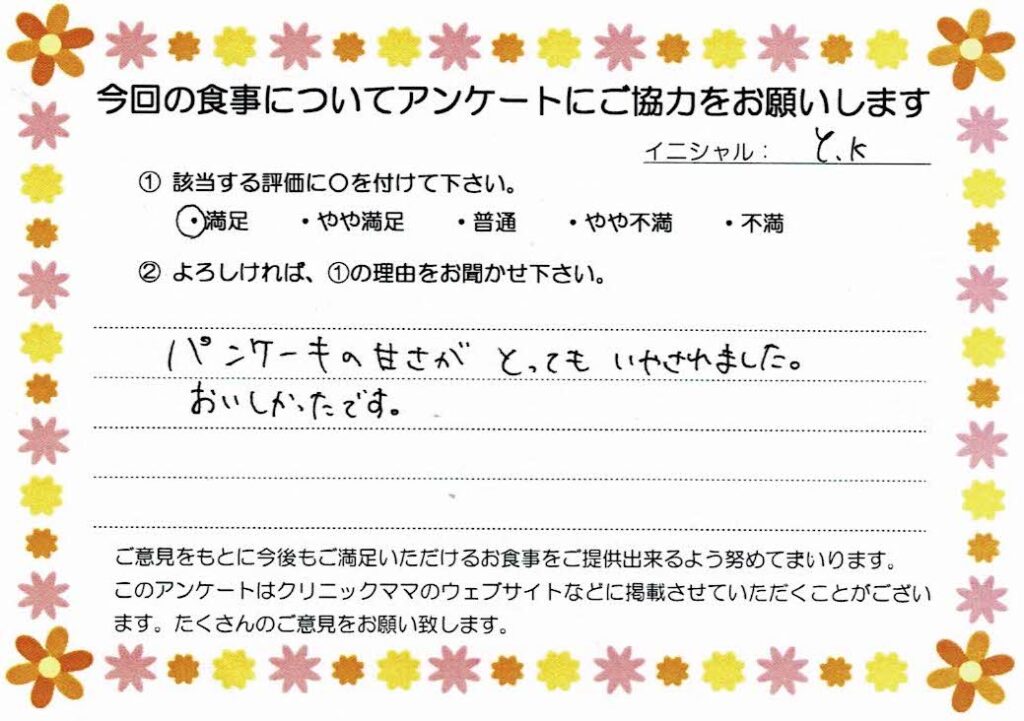 今回の食事についてアンケートにご協力をお願いします
イニシャル： と.k
① 該当する評価に〇を付けて下さい。
・満足 ・やや満足 ・普通 ・やや不満 ・不満
② よろしければ、①の理由をお聞かせ下さい。
パンケーキの甘さが とっても いやされました。
おいしかったです。
ご意見をもとに今後もご満足いただけるお食事をご提供出来るよう努めてまいります。
このアンケートはクリニックママのウェブサイトなどに掲載させていただくことがござい
ます。たくさんのご意見をお願い致します。